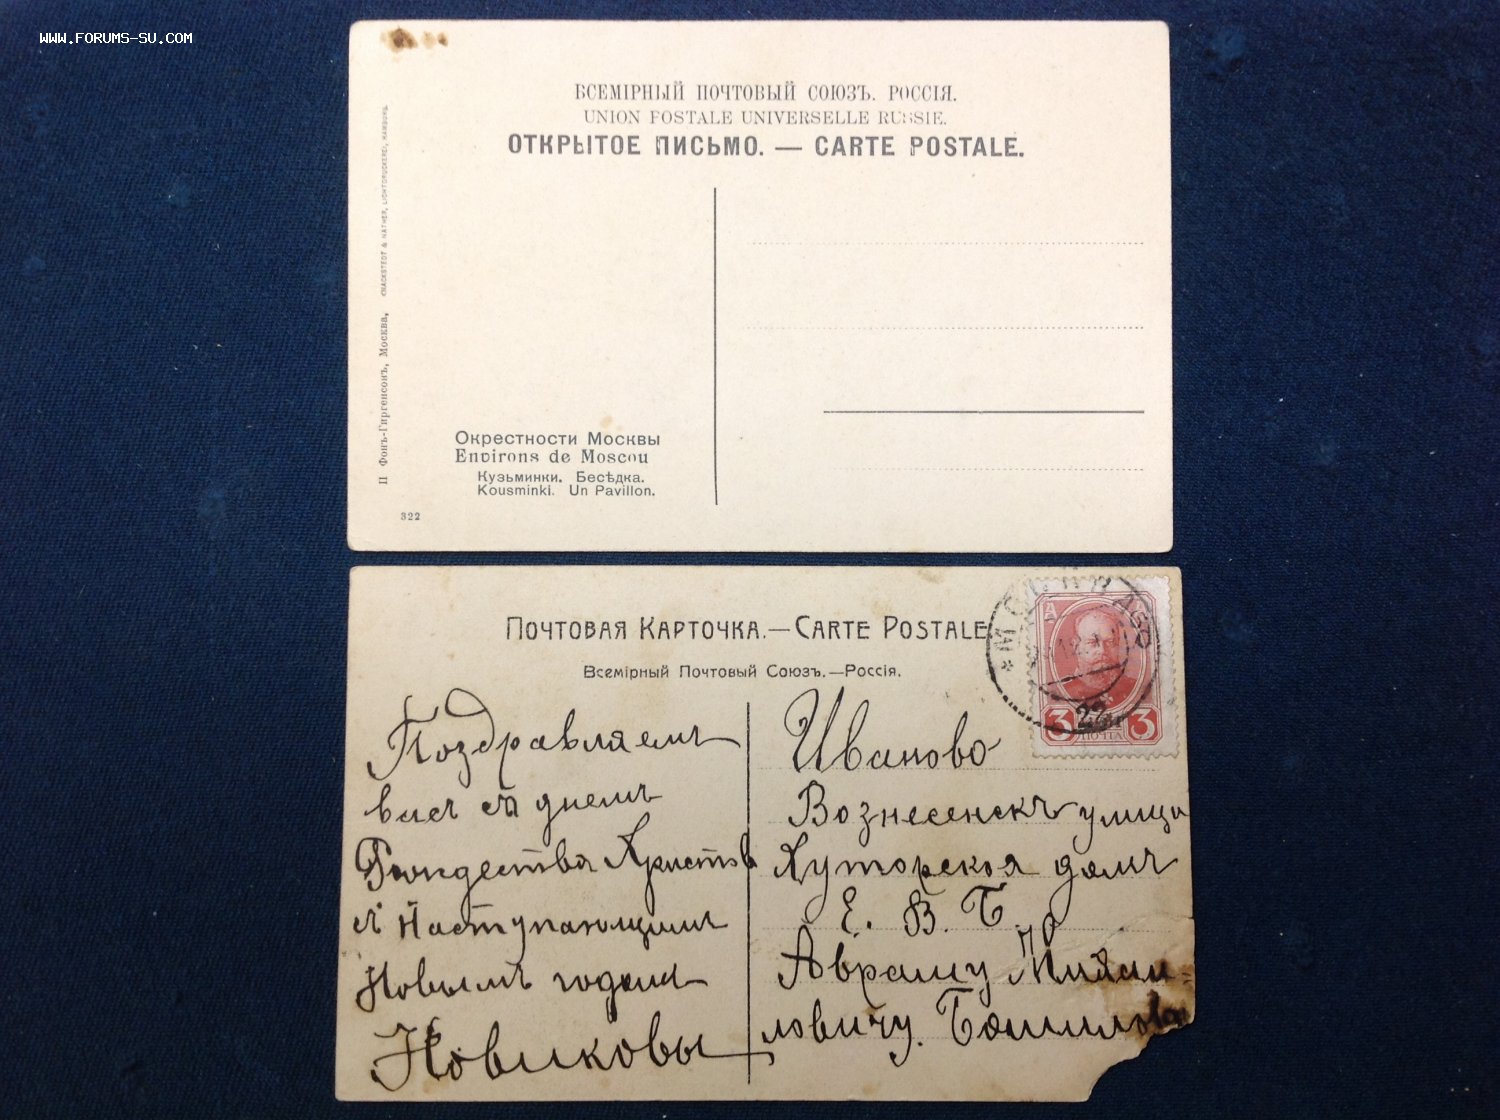 WWW.FORUMS-SU.COM
ВСЕМІРНЫЙ ПОЧТОВЫЙ СОЮЗЪ. РОССІЯ.
UNION POSTALE UNIVERSELLE RUSSIE.
ОТКРЫТОЕ ПИСЬМО. — CARTE POSTALE.
П Фонъ-Гиргенсонъ, Москва, KNACKSTEDT & NÄTHER, LICHTDRUCKEREI, HAMBURG.
Окрестности Москвы
Environs de Moscou
Кузьминки. Бесѣдка.
Kousminki. Un Pavillon.
322
ПОЧТОВАЯ КАРТОЧКА.—CARTE POSTALE
Всемірный Почтовый Союзъ.—Россія.
3 3
ПОЧТА
22
Поздравляемъ
васъ съ днемъ
Рождества Христов
съ Наступающимъ
Новымъ годомъ
Новиковы
Иваново
Вознесенскъ улица
Хуторская домъ
Е. В. Б.
Аврааму
ловичу.